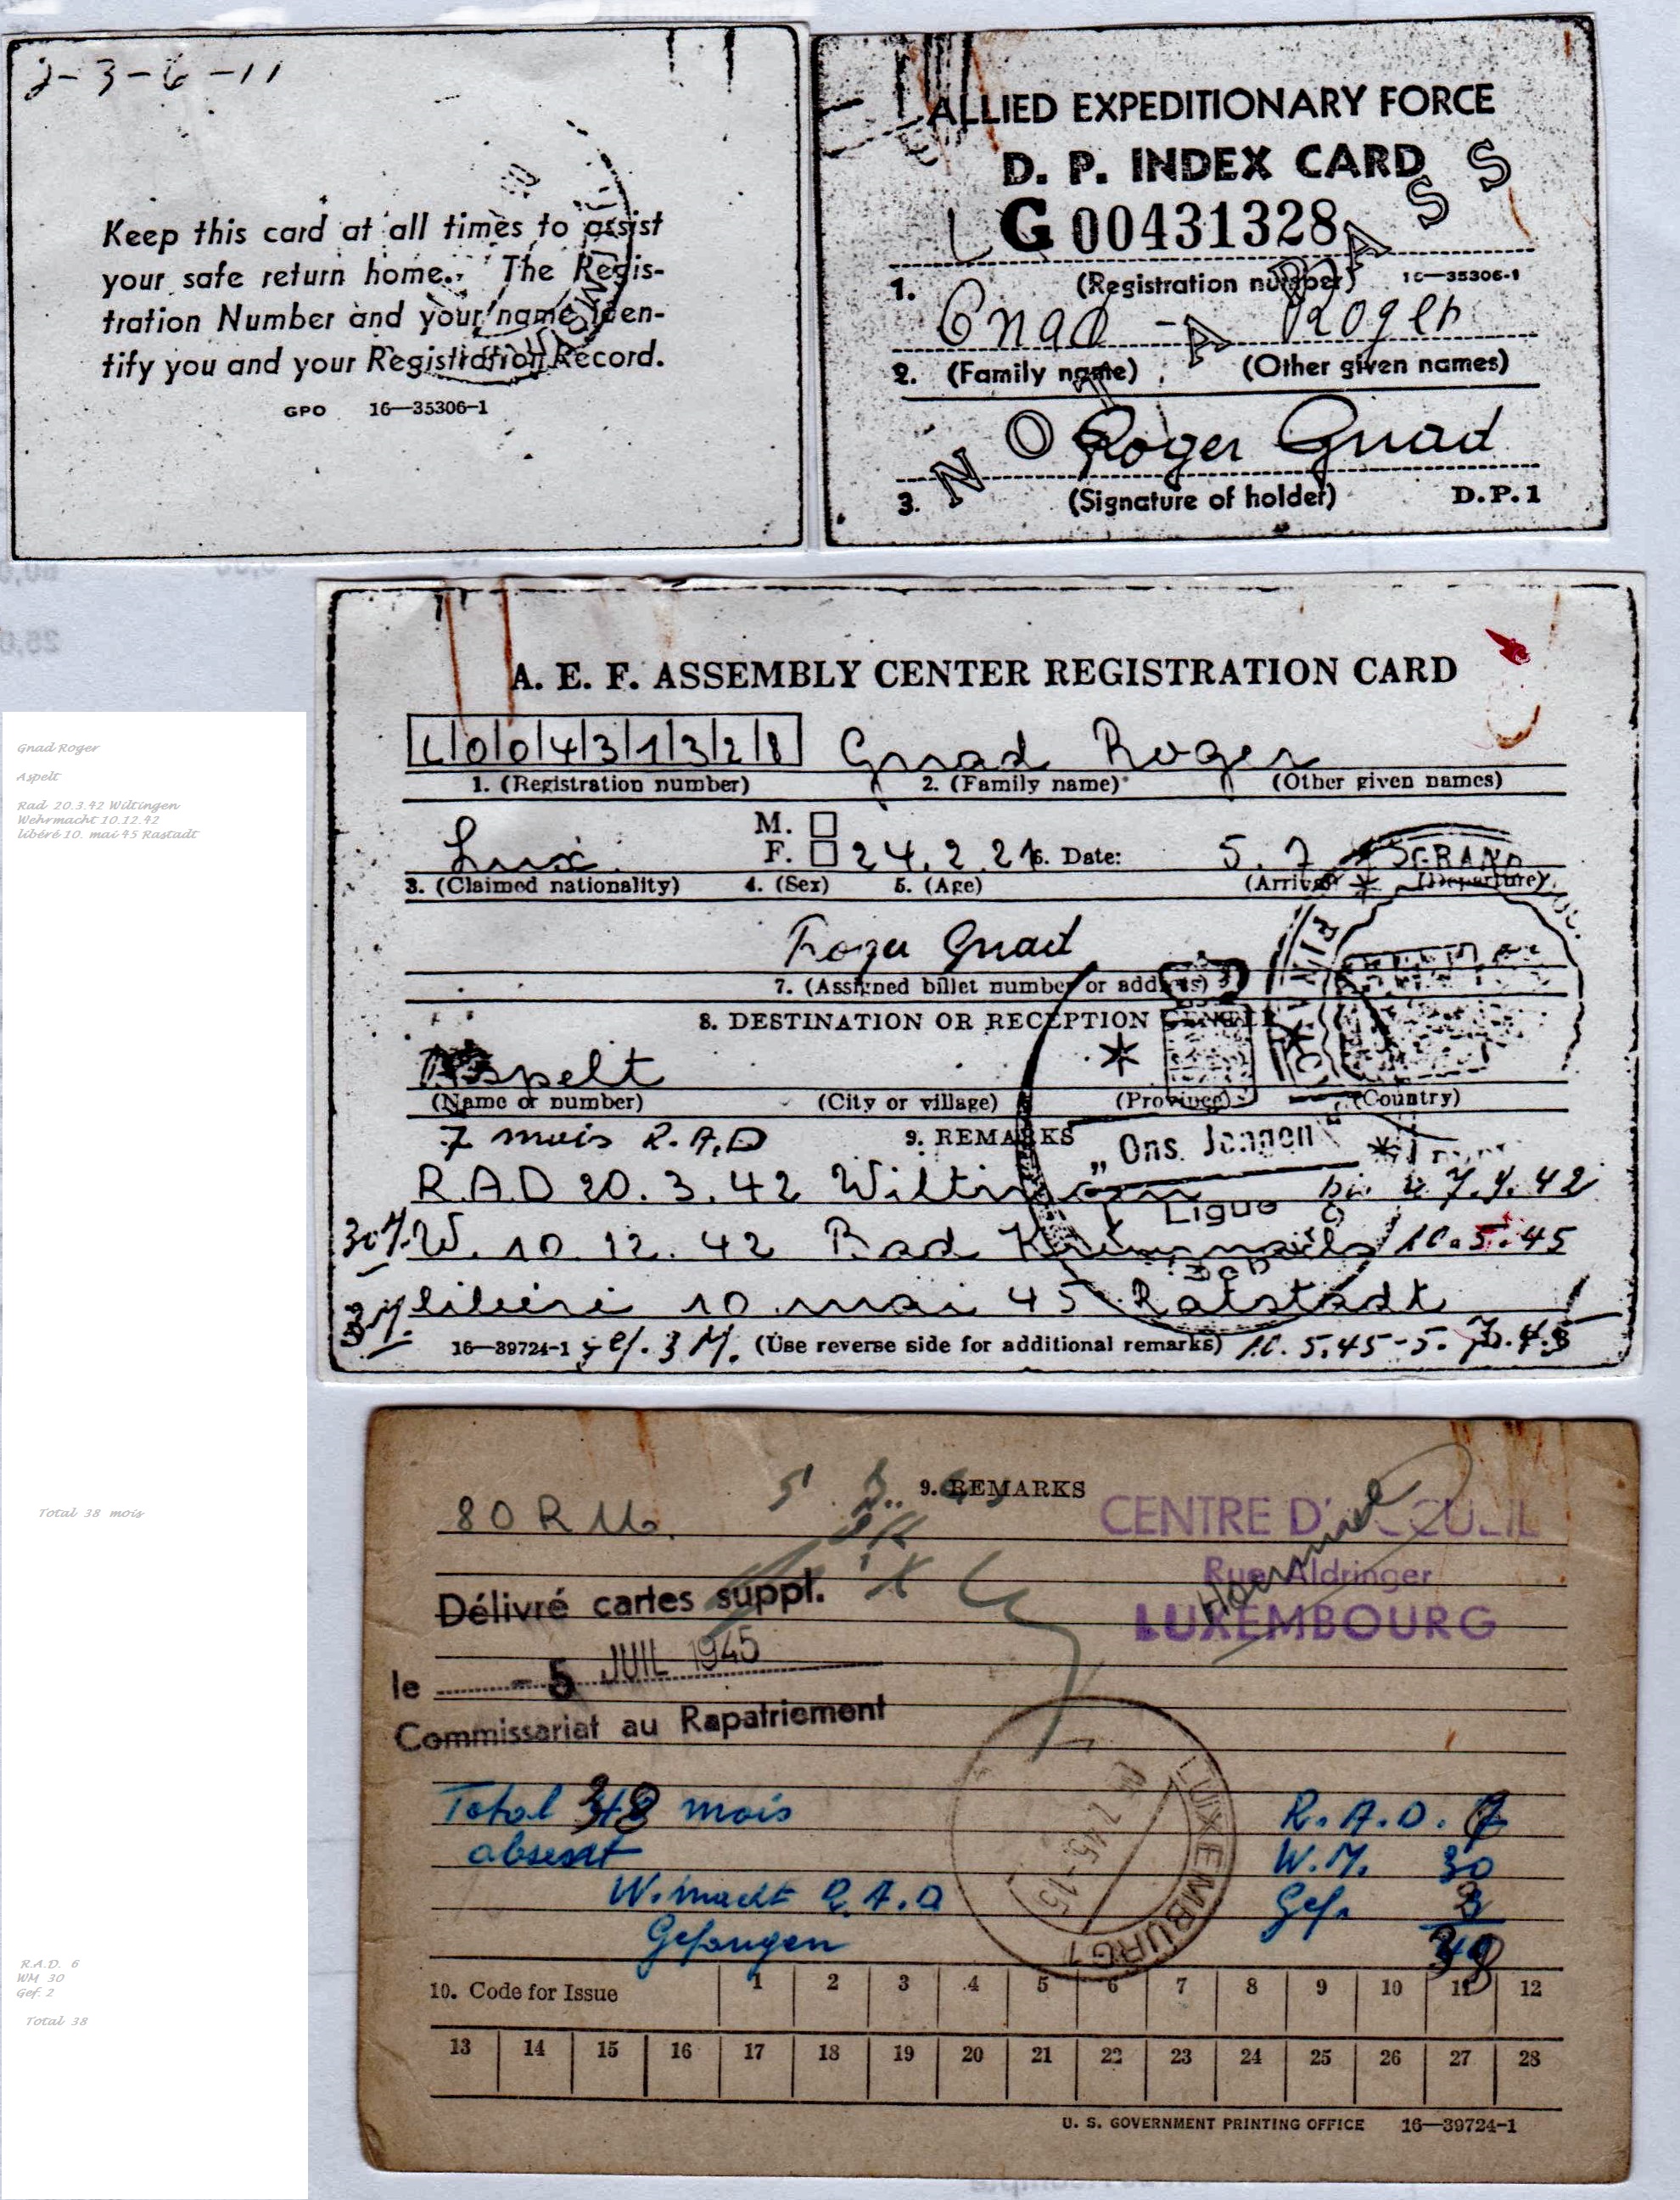 2-3-6-11
Keep this card at all times to assist
your safe return home. The Regis-
tration Number and your name iden-
tify you and your Registration Record.
GPO 16—35306-1
ALLIED EXPEDITIONARY FORCE
D. P. INDEX CARD
G 00431328
(Registration number) 16—35306-1
1.
Gnad - Roger
2. (Family name) (Other given names)
NOT A PASS
Roger Gnad
3. (Signature of holder) D.P.1
A. E. F. ASSEMBLY CENTER REGISTRATION CARD
L|0|0|4|3|1|3|2|8 Gnad Roger
1. (Registration number) 2. (Family name) (Other given names)
M.
Lux. F. 24.2.21 6. Date: 5.7
3. (Claimed nationality) 4. (Sex) 5. (Age) (Arrival) (Departure)
GRAND
Roger Gnad
7. (Assigned billet number or address)
8. DESTINATION OR RECEPTION CENTER
Aspelt
(Name or number) (City or village) (Province) (Country)
7 mois R.A.D 9. REMARKS
„Ons Jongen"
R.A.D 20.3.42 Wiltingen
Ligue
30 M. W. 10.12.42 Bad 10.5.45
3 M. libéré 10 mai 45 Ratstadt
16—39724-1 gef. 3 M. (Use reverse side for additional remarks) 10.5.45-5.7.45
Gnad Roger
Aspelt
Rad 20.3.42 Wiltingen
Wehrmacht 10.12.42
libéré 10. mai 45 Rastadt
9. REMARKS
80 RM.
CENTRE D'ACCUEIL
Rue Aldringer
LUXEMBOURG
Délivré cartes suppl.
le - 5 JUIL 1945
Commissariat au Rapatriement
Total 38 mois
Total 38 mois R.A.D.
absent W.M. 30
W.macht R.A.D Gef. 3
Gefangen 38
LUXEMBOURG 1
R.A.D. 6
WM 30
Gef. 2
Total 38
10. Code for Issue 1 2 3 4 5 6 7 8 9 10 11 12
13 14 15 16 17 18 19 20 21 22 23 24 25 26 27 28
U. S. GOVERNMENT PRINTING OFFICE 16—39724-1